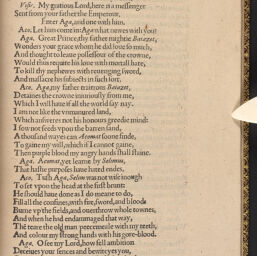 Visir. My gratious Lord, here is a messenger
Sent from your father the Emperour.
Enter Aga, and one with him.
Aco. Let him come in: Aga what newes with you?
Aga. Great Prince, thy father mightie Baiazet,
Wonders your grace whom he did loue so much,
And thought to leaue possessour of the crowne,
Would thus requite his loue with mortall hate,
To kill thy nephewes with reuenging sword,
And massacre his subiects in such sort.
Aco. Aga, my father traiterous Baiazet,
Detaines the crowne iniuriously from me,
Which I will haue if all the world say nay.
I am not like the vnmanured land,
Which answeres not his honours greedie mind:
I sow not seeds vpon the barren sand,
A thousand wayes can Acomat soone finde,
To gaine my will, which if I cannot gaine,
Then purple blood my angry hands shall staine.
Aga. Acomat, yet learne by Selimus,
That hastie purposes haue hated endes,
Aco. Tush Aga, Selim was not wise inough
To set vpon the head at the first brunt:
He should haue done as I do meane to do,
Fill all the confines with fire, sword, and blood
Burne vp the fields, and ouerthrow whole townes,
And when he had endammaged that way,
Then teare the old man peecemeale with my teeth,
And colour my strong hands with his gore-blood.
Aga. O see my Lord, how fell ambition
Deceiues your sences and bewitches you,